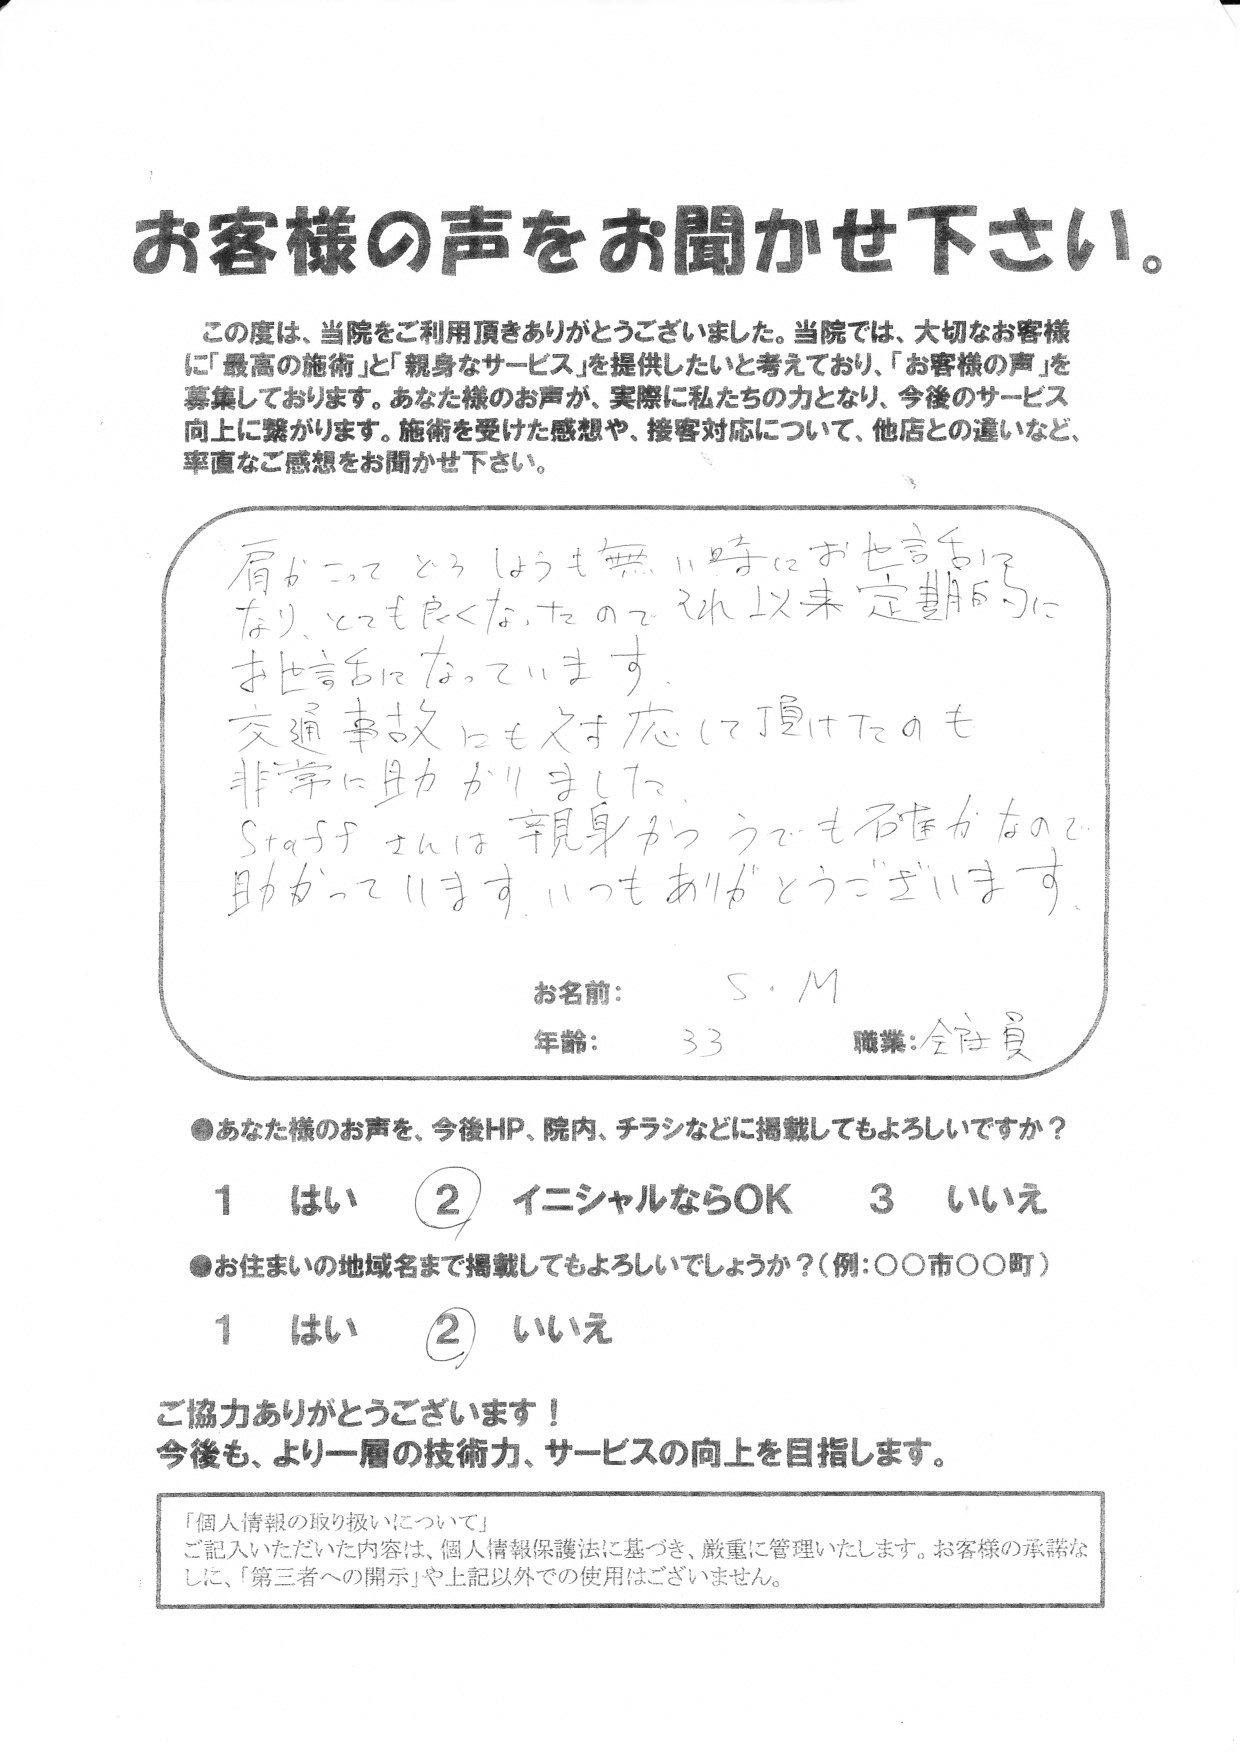 お客様の声をお聞かせ下さい。
この度は、当院をご利用頂きありがとうございました。当院では、大切なお客様
に「最高の施術」と「親身なサービス」を提供したいと考えており、「お客様の声」を
募集しております。あなた様のお声が、実際に私たちの力となり、今後のサービス
向上に繋がります。施術を受けた感想や、接客対応について、他店との違いなど、
率直なご感想をお聞かせ下さい。
肩がこってどうしようも無い時にお世話に
なり、とても良くなったのでそれ以来定期的に
お世話になっています.
交通事故にも対応して頂けたのも
非常に助かりました.
Staffさんは親身かつうでも確かなので
助かっています.いつもありがとうございます.
お名前: S.M
年齢: 33 職業:会社員
●あなた様のお声を、今後HP、院内、チラシなどに掲載してもよろしいですか?
1 はい 2 イニシャルならOK 3 いいえ
●お住まいの地域名まで掲載してもよろしいでしょうか?(例:〇〇市〇〇町)
1 はい 2 いいえ
ご協力ありがとうございます!
今後も、より一層の技術力、サービスの向上を目指します。
「個人情報の取り扱いについて」
ご記入いただいた内容は、個人情報保護法に基づき、厳重に管理いたします。お客様の承諾な
しに、「第三者への開示」や上記以外での使用はございません。